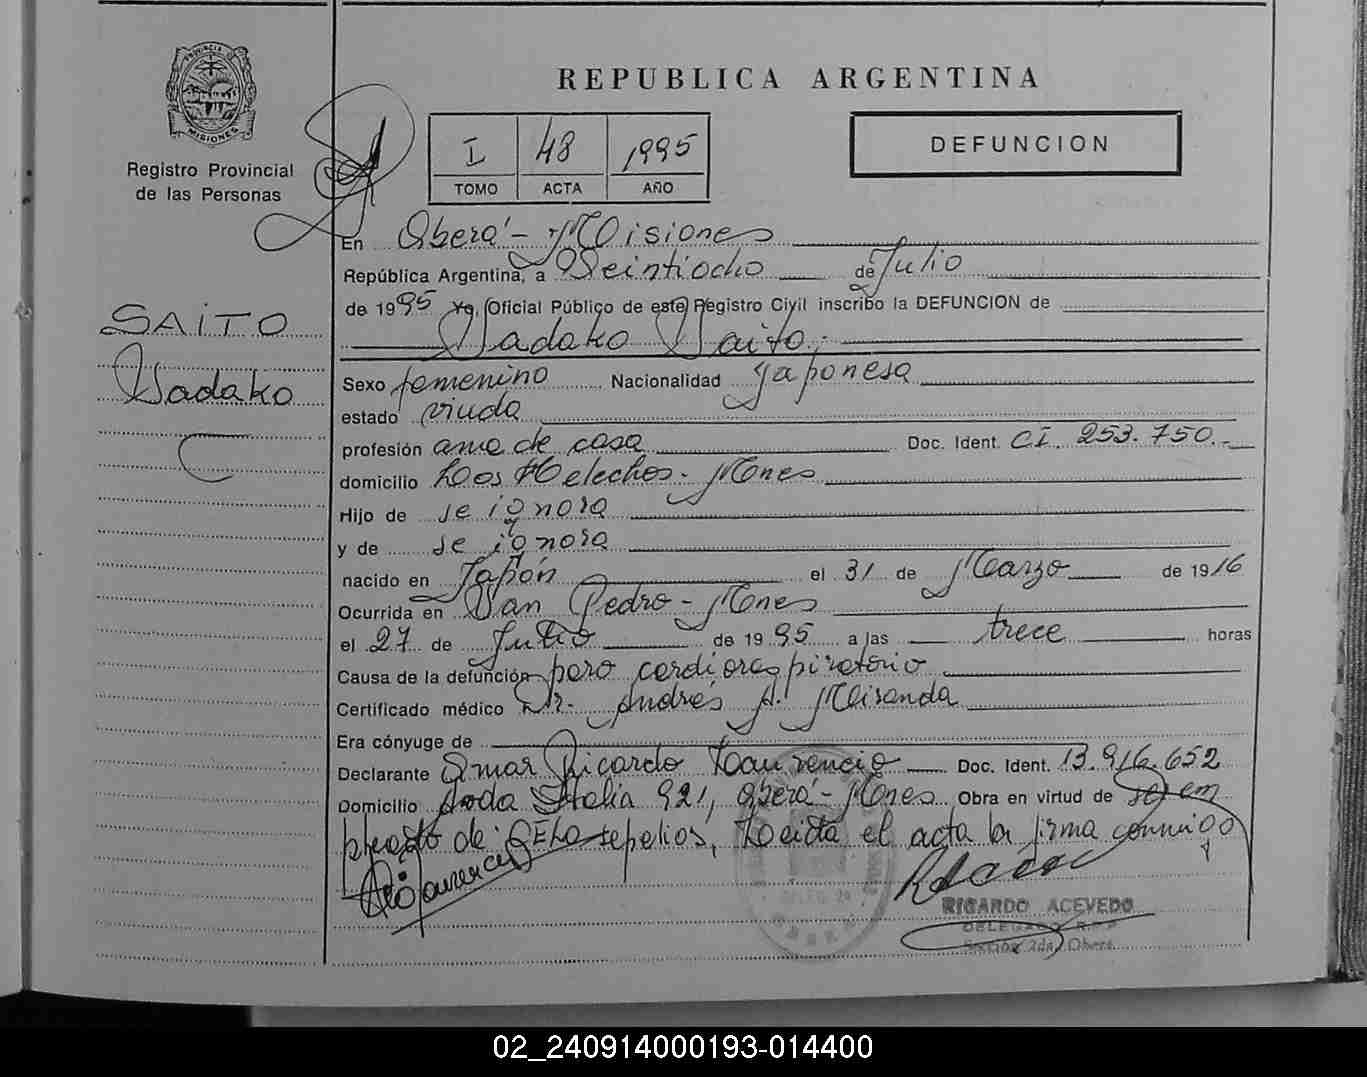 PROVINCIA DE
MISIONES
Registro Provincial
de las Personas
REPUBLICA ARGENTINA
I 48 1995
TOMO ACTA AÑO
DEFUNCION
SAITO
Sadako
En Oberá - Misiones
República Argentina, a Veintiocho de Julio
de 1995 Yo, Oficial Público de este Registro Civil inscribo la DEFUNCION de
Sadako Saito,
Sexo femenino Nacionalidad Japonesa
estado viuda
profesión ama de casa Doc. Ident. C.I. 253.750.-
domicilio Los Helechos - Mnes
Hijo de se ignora
y de se ignora
nacido en Japón el 31 de Marzo de 1916
Ocurrida en San Pedro - Mnes
el 27 de Julio de 1995 a las trece horas
Causa de la defunción paro cardiorespiratorio
Certificado médico Dr. Andrés A. Miranda
Era cónyuge de
Declarante Omar Ricardo Laurencio Doc. Ident. 13.916.652
Domicilio Avda Italia 921, Oberá - Mnes Obra en virtud de ser em
pleado de sepelios, Leída el acta la firma conmigo
RICARDO ACEVEDO
DELEGADO R.P.P.
Sección 2da. Oberá
02_240914000193-014400